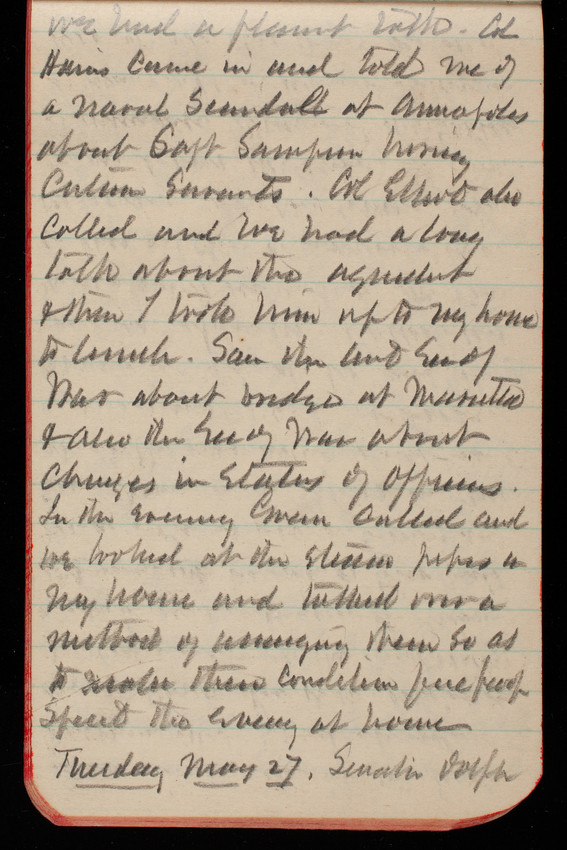 we had a pleasant talk. Col
Harris came in and told me of
a naval Scandall at Annapolis
about Capt Sampson having
Certain Servants. Col Elliot also
Called and we had a long
talk about the
& then I took him up to my house
to lunch. Saw the Asst Sec of
War about bridge at Marietta
& also the Sec of War about
Changes in Status of Officers.
In the evening Green Called and
we looked at the steam pipes in
my house and talked over a
method of arranging them so as
to make their condition fire proof
Spent the Evening at home
Tuesday May 27. Senator Dolph